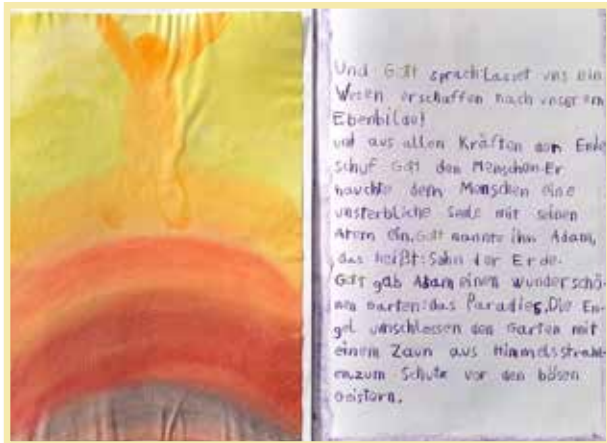 Und Gott sprach: Lasset uns ein
Wesen erschaffen nach unserem
Ebenbilde!
und aus allen Kräften der Erde
schuf Gott den Menschen. Er
hauchte dem Menschen eine
unsterbliche Seele mit seinen
Atem ein. Gott nannte ihn Adam,
das heißt: Sohn der Erde.
Gott gab Adam einen wunderschö-
nen Garten: das Paradies. Die En-
gel umschlossen den Garten mit
einem Zaun aus Himmelsstrahl-
en zum Schutz vor den bösen
Geistern.